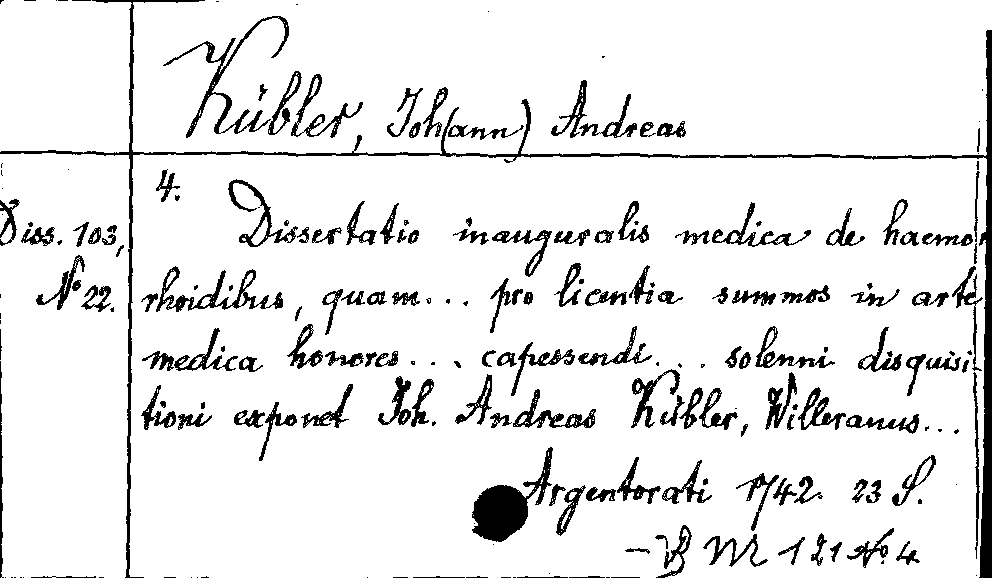 Kübler, Joh(ann) Andreas
4.
Diss. 103, Dissertatio inauguralis medica de haemor
No 22. rhoidibus, quam... pro licentia summos in arte
medica honores... capessendi... solenni disquisi-
tioni exponet Joh. Andreas Kübler, Willeranus...
Argentorati 1742. 23 S.
121 No. 4